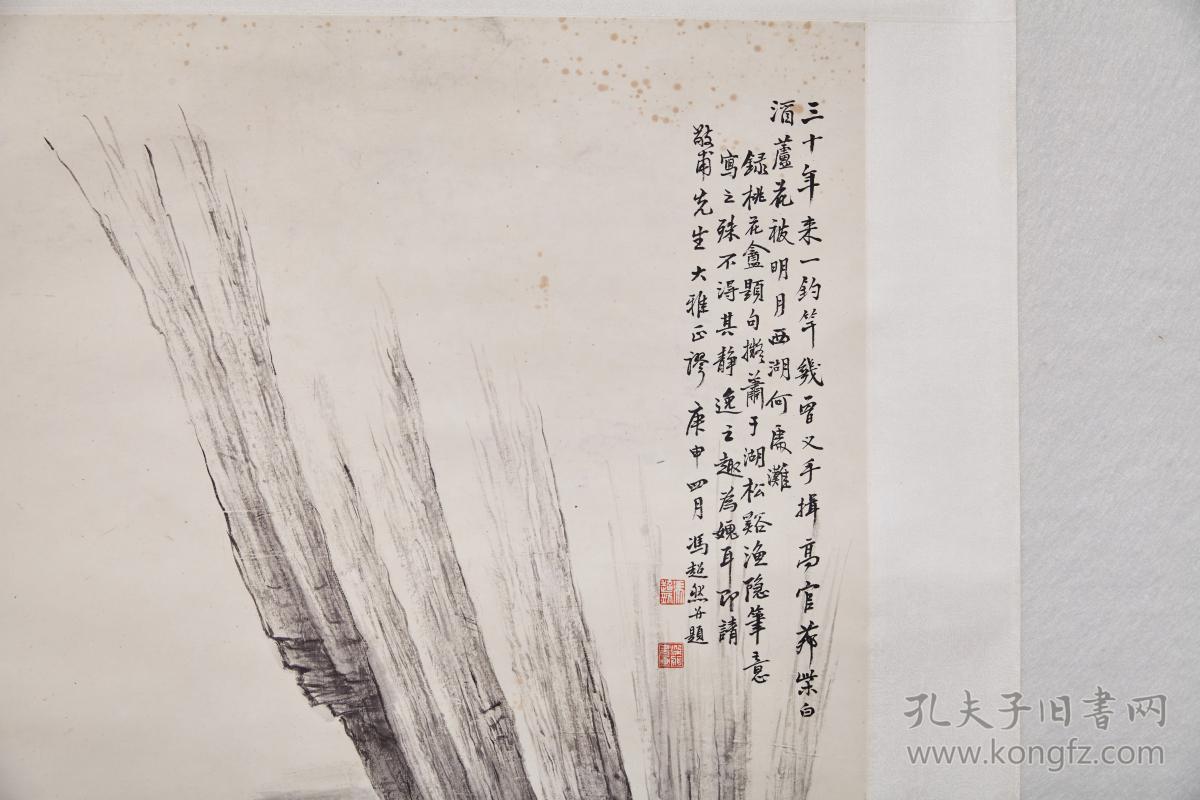 三十年来一钓竿幾曾叉手揖高官茀柴白
酒蘆花被明月西湖何處灘
録桃花盦題句擬蕭于湖松谿漁隐筆意
寫之殊不得其静逸之趣為媿耳即請
敬甫先生大雅正謬 庚申四月馮超然并題
孔夫子旧書网
www.kongfz.com